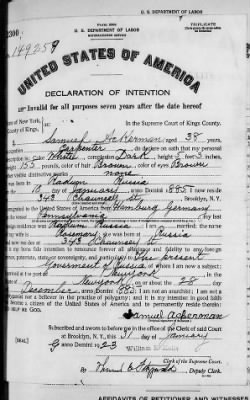 U. S. DEPARTMENT OF LABOR
U. S. DEPARTMENT OF LABOR
NATURALIZATION SERVICE
TRIPLICATE
No. 149259
UNITED STATES OF AMERICA
DECLARATION OF INTENTION
Invalid for all purposes seven years after the date hereof
State of New York,
County of Kings,
In the Supreme Court of Kings County.
I, Samuel Ackerman, aged 38 years,
occupation Carpenter, do declare on oath that my personal
description is: Color White, complexion Dark, height 5 feet 3 inches,
weight 155 pounds, color of hair Brown, color of eyes Brown
other visible distinctive marks none
Russia
on the 10 day of January, anno Domini 1885; I now reside
at 343 Chauncey St., Brooklyn, N. Y.
I emigrated to the United States of America from Hamburg Germany
on the vessel Pennsylvania; my last
foreign residence was Russia; I am married; the name
of my wife is Rosemary; she was born at Russia
and now resides at 343 Chauncey St.
It is my bona fide intention to renounce forever all allegiance and fidelity to any foreign
prince, potentate, state, or sovereignty, and particularly to The present
Government of Russia, of whom I am now a subject;
I arrived at the port of New York, in the
State of New York, on or about the 28 day
of December, anno Domini; I am not an anarchist; I am not a
polygamist nor a believer in the practice of polygamy; and it is my intention in good faith
to become a citizen of the United States of America and to permanently reside therein:
SO HELP ME GOD.
Samuel Ackerman
Subscribed and sworn to before me in the office of the Clerk of said Court
at Brooklyn, N. Y., this 31 day of January
anno Domini 1923
[SEAL]
Clerk of the Supreme Court.
By Deputy Clerk.
AFFIDAVITS OF PETITIONER AND WITNESSES